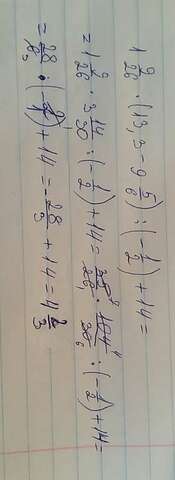 1 9/26 · (13,3 - 9 5/6) : (-1/2) + 14 =
= 1 9/26 · 3 14/30 : (-1/2) + 14 = 35/26 · 104/30 : (-1/2) + 14 =
= 28/6 · (-2) + 14 = -28/3 + 14 = 4 2/3